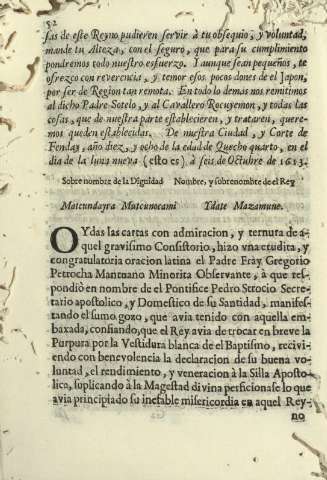 52
sas de este Reyno pudieren servir à tu obsequio, y voluntad,
mande tu Alteza, con el seguro, que para su cumplimiento
pondremos todo nuestro esfuerzo. Y aunque sean pequeños, te
ofrezco con reverencia, y temor esos pocos dones de el Japon,
por ser de Region tan remota. En todo lo demàs nos remitimos
al dicho Padre Sotelo, y al Cavallero Rocuyemon, y todas las
cosas, que de nuestra parte establecieren, y trataren, quere-
mos queden establecidas. De nuestra Ciudad, y Corte de
Fenday, año diez, y ocho de la edad de Quecho quarto, en el
dia de la luna nueva (esto es) à seis de Octubre de 1613.
Sobre nombre de la Dignidad Nombre, y subrenombre de el Rey
Matcundayra Mutcunocami Ydate Mazamune.
OYdas las cartas con admiracion, y ternura de a-
quel gravisimo Consistorio, hizo vna erudita, y
congratulatoria oracion latina el Padre Fray Gregorio
Petrocha Mantuano Minorita Observante, à que res-
pondiò en nombre de el Pontifice Pedro Strocio Secre-
tario apostolico, y Domestico de su Santidad, manifes-
tando el sumo gozo, que avia tenido con aquella em-
baxada, confiando, que el Rey avia de trocar en breve la
Purpura por la Vestidura blanca de el Baptismo, recivi-
endo con benevolencia la declaracion de su buena vo-
luntad, el rendimiento, y veneracion à la Silla Aposto-
lica, suplicando à la Magestad divina perficionase lo que
avia principiado su inefable misericordia en aquel Rey-
no